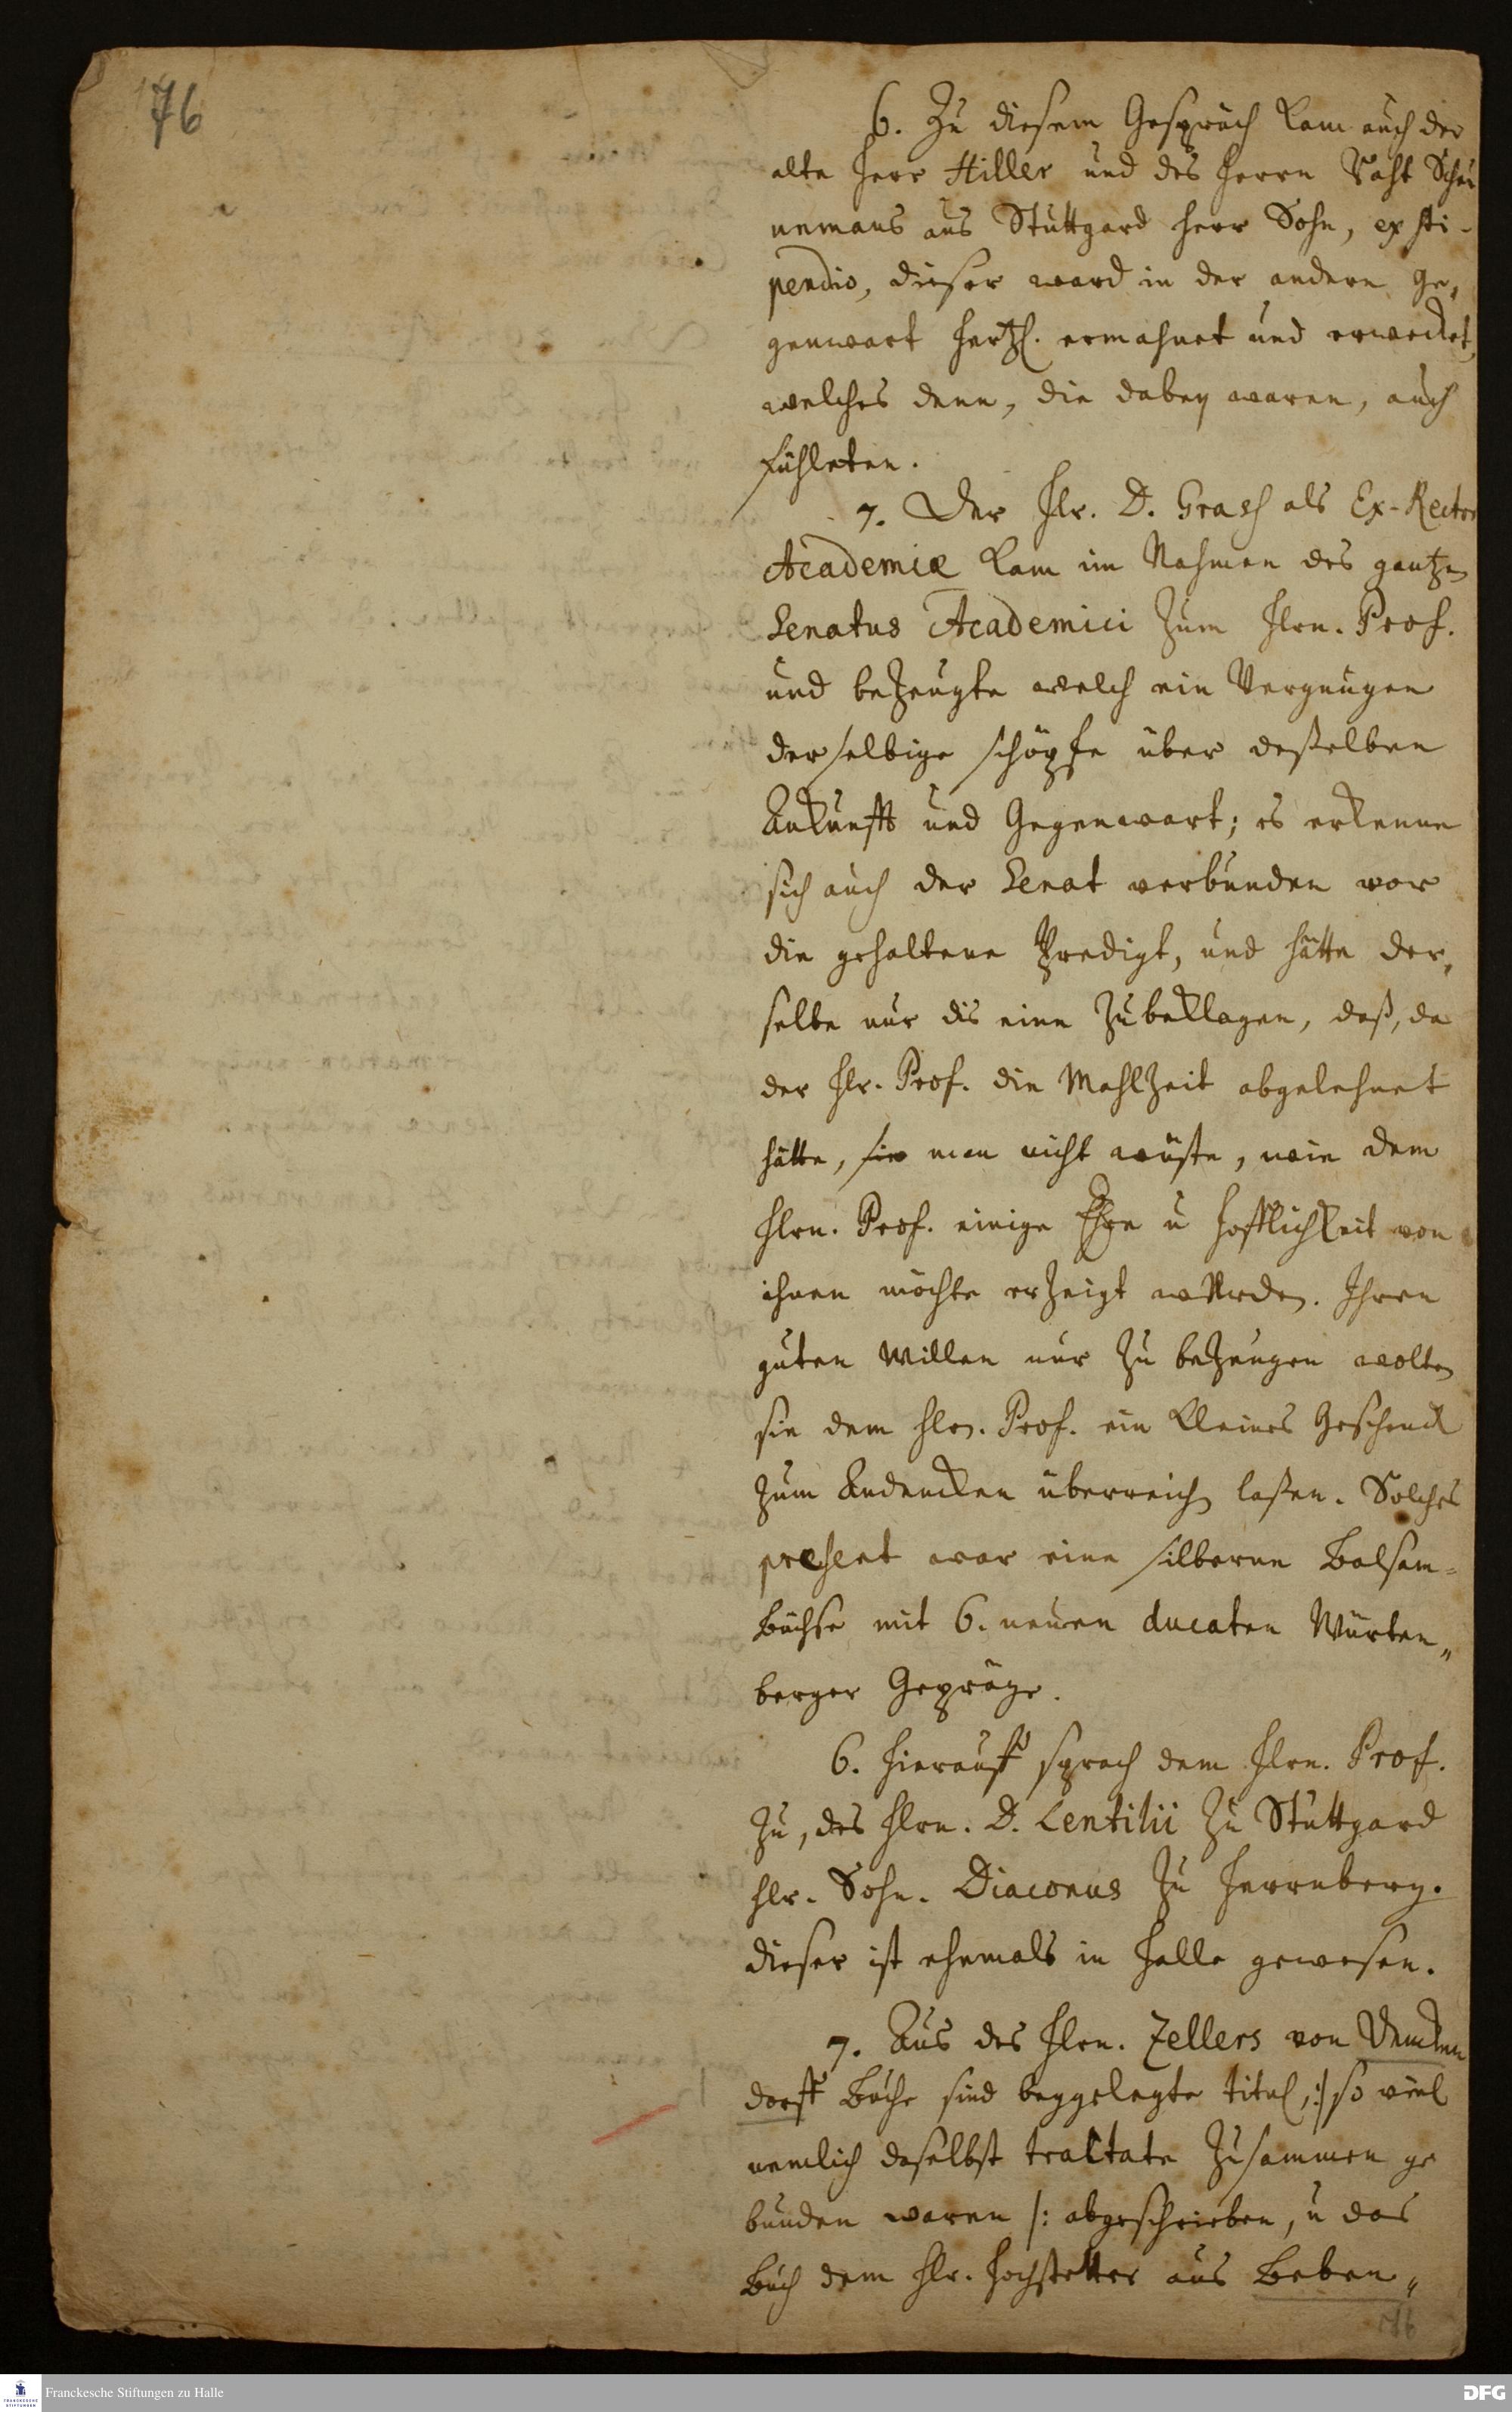 76
6. Zu diesem Gespräch kam auch der
alte Herr Hiller und des Herrn Raht Scheu
nemans aus Stuttgard Herr Sohn, ex sti-
pendio, dieser ward in der andern Ge,
genwart hertzl. ermahnet und erwecket,
welches denn, die dabey waren, auch
fühleten.
7. Der Hr. D. Grass als Ex-Rector
Academiæ kam im Nahmen des gantzen
Senatus Academici zum Hrn. Prof.
und bezeugte welch ein Vergnügen
derselbige schöpfe über deßelben
Ankunfft und Gegenwart; es erkenne
sich auch der Senat verbunden vor
die gehaltene Predigt, und hätte der,
selbe nur dis eine zubeklagen, daß, da
der Hr. Prof. die Mahlzeit abgelehnet
hätte, sie man nicht wüste, wie dem
Hrn. Prof. einige Ehre u Hofflichkeit von
ihnen möchte erzeigt werden. Ihren
guten Willen nur zu bezeugen wolten
sie dem Hrn. Prof. ein kleines Geschenck
zum Andencken überreichen laßen. Solches
present war eine silberne Balsam-
büchse mit 6. neuen ducaten Würten„
berger Gepräge.
6. Hierauff sprach dem Hrn. Prof.
zu, des Hrn. D. Lentilii zu Stuttgard
Hr. Sohn. Diaconus zu Herrnberg.
dieser ist ehemals in Halle gewesen.
7. Aus des Hrn. Zellers von Dencken
dorff Buche sind beygelegte titul, :/ so viel
nemlich daselbst tractate zusammen ge
bunden waren /: abgeschrieben, u das
Buch dem Hr. Hochstetter aus Beben„
76
Franckesche Stiftungen zu Halle
DFG